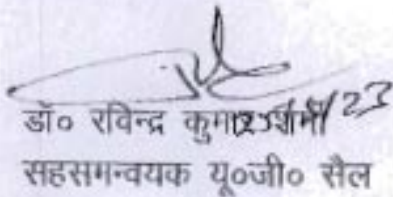 डॉ० रविन्द्र कुमार शर्मा
सहसमन्वयक यू०जी० सैल